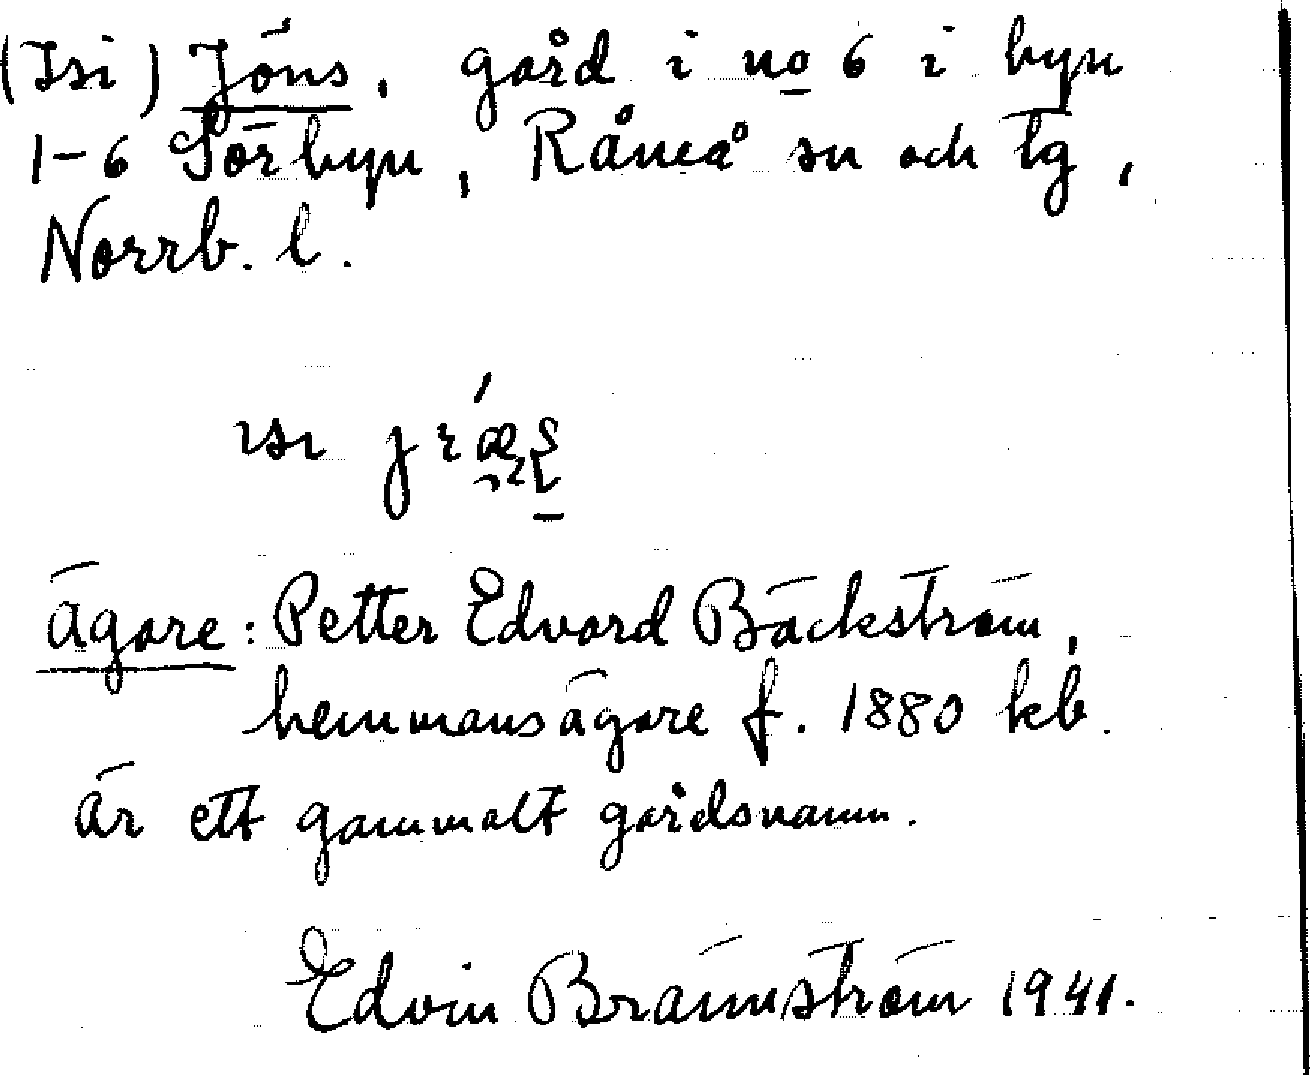 (Isi) Jöns, gård i no 6 i byn
1-6 Sörbyn, Råneå sn och tg,
Norrb. l.
ısı
ägare: Petter Edvard Bäckström,
hemmansägare f. 1880 kb.
är ett gammalt gårdsnamn.
Edvin Brännström 1941.